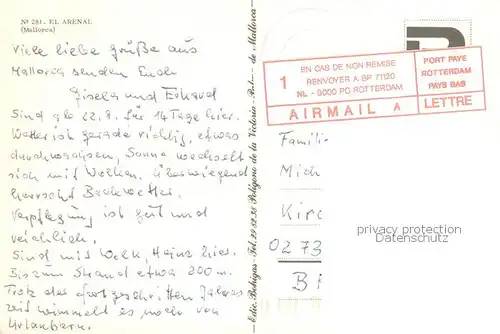 Nº 281. EL ARENAL
(Mallorca)
Viele liebe Grüße aus
Mallorca senden Euch
Gisela und Erhard
Sind ab 22.8. für 14 Tage hier.
Wetter ist gerade richtig, etwas
durchwachsen, Sonne wechselt
sich mit Wolken. Überwiegend
herrscht Badewetter.
Verpflegung ist gut und
reichlich.
Sind mit Heinz hier.
Bis zum Strand etwa 200 m.
Trotz des fortgeschrittenen Jahres
zeit wimmelt es noch von
Urlaubern.
Edic. Bohigas - Tel. Polígono de la Victoria - de Mallorca
1
EN CAS DE NON REMISE
RENVOYER A BP 71120
NL - 3000 PO ROTTERDAM
AIRMAIL A
PORT PAYE
ROTTERDAM
PAYS BAS
LETTRE
Famili
Mich
Kirc
0273
B
privacy protection
oldthing.de